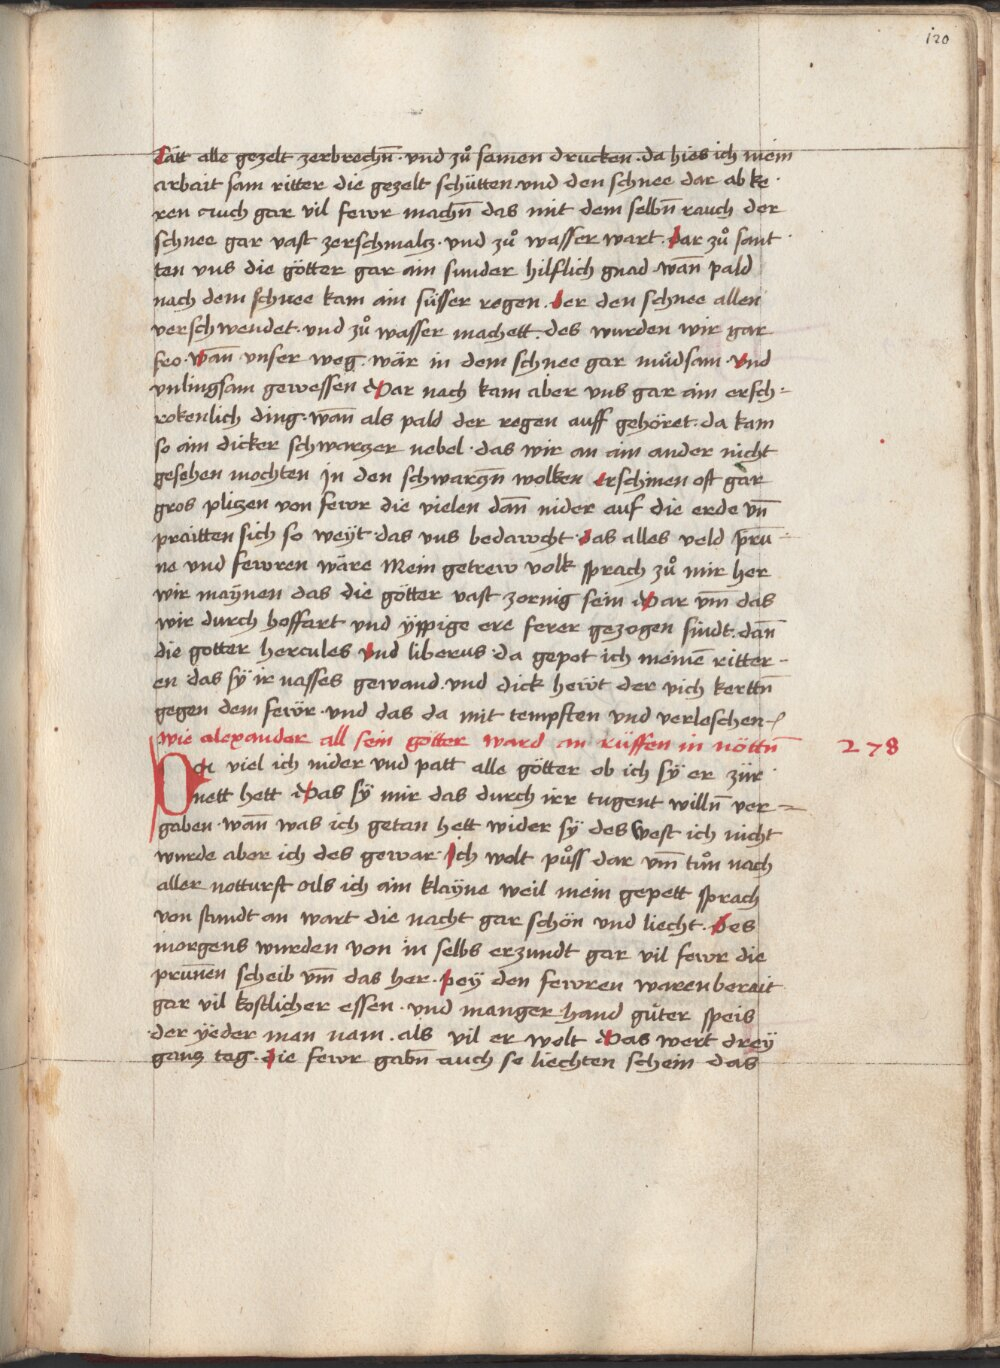 120
Latt alle gezelt zerbrechn̄ · vnd zů samen drucken · da hies ich mein
arbait sam ritter die gezelt schütten vnd den schnee dar ab ke ·
ren auch gar vil fewr machn̄ das mit dem selbn̄ rauch der
schnee gar vast zerschmalcz · vnd zů wasser wart · Dar zů sant ·
ten vns die götter gar ain sunder hilflich gnad · wan̄ pald
nach dem schnee kam ain süsser regen · der den schnee allen
verschwendet · vnd zů wasser machett · des wurden wir gar
fro · wan̄ vnser weg wär in dem schnee gar müdsam · vnd
vnlingsam gewessen Dar nach kam aber vns gar ain ersch-
rokenlich ding · wan̄ als pald der regen auff gehöret · da kam
so ain dicker schwarczer nebel · das wir an ain ander nicht
gesehen mochten in den schwarczn̄ wolken erschinen oft gar
gros pliczen von fewr die vielen dan̄ nider auf die erde vn̄
praitten sich so weÿt · das vns bedawcht · das alles veld prū-
ne vnd fewren wäre Mein getrew volk sprach zů mir her
wir maÿnen das die götter vast zornig sein Dar vm̄ das
wir durch hoffart vnd ÿppige ere ferer gezogen sindt · dan̄
die gotter hercules vnd liberus · da gepot ich meinē ritter-
en das sÿ ir nasses gewand · vnd dick hewt der vich kerttn̄
gegen dem fewr · vnd das da mit tempften vnd verleschen
wie alexander all sein götter ward an rüffen in nöttn̄
278
Do viel ich nider vnd patt alle götter ob ich sÿ er zür ·
nett hett Das sÿ mir das durch irr tugent willn̄ ver-
gaben · wan̄ was ich getan hett wider sÿ des west ich nicht
wurde aber ich des gewar · Ich wolt půss dar vm̄ tůn nach
aller notturft Als ich ain klaÿne weil mein gepett sprach
von stundt an wart die nacht gar schön vnd liecht · Des
morgens wurden von in selbs erzundt gar vil fewr die
prun̄en scheib vm̄ das her · peÿ den fewren waren berait
gar vil kostlicher essen · vnd manger hand gůter speis
der ÿeder man nam · als vil er wolt Das wert dreÿ
gancz tag · die fewr gabn̄ auch so liechten schein das